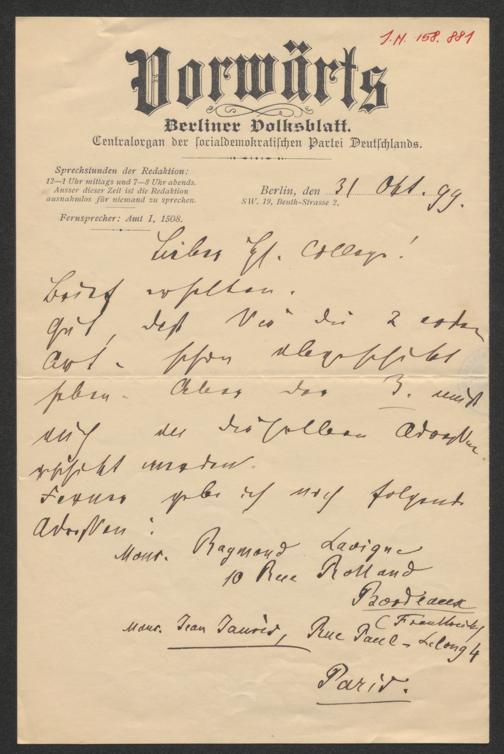 I.N. 158.881
Vorwärts
Berliner Volksblatt.
Centralorgan der socialdemokratischen Partei Deutschlands.
Sprechstunden der Redaktion:
12—1 Uhr mittags und 7—8 Uhr abends.
Ausser dieser Zeit ist die Redaktion
ausnahmlos für niemand zu sprechen.
Fernsprecher: Amt I, 1508.
Berlin, den 31 Okt. 99.
SW. 19, Beuth-Strasse 2.
Lieber College!
Brief erhalten.
Gut, daß Sie die 2 ersten
Art. schon abgeschickt
haben. Aber der 3. muß
auch an dieselben Adressen
geschickt werden.
Ferner gebe ich noch folgende
Adressen:
Mons. Raymond Lavigne
10 Rue Rolland
Bordeaux
(Frankreich)
Mons. Jean Jaurès, Rue Paul-Lelong 4
Paris.